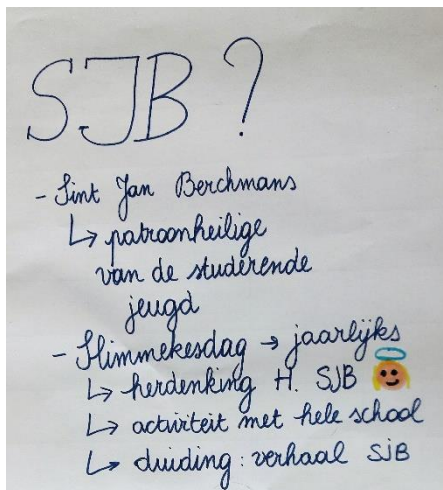 SJB ?
- Sint Jan Berchmans
↳ patroonheilige
van de studerende
jeugd
- Slimmekesdag → jaarlijks
↳ herdenking H. SJB
↳ activiteit met hele school
↳ duiding : verhaal SJB